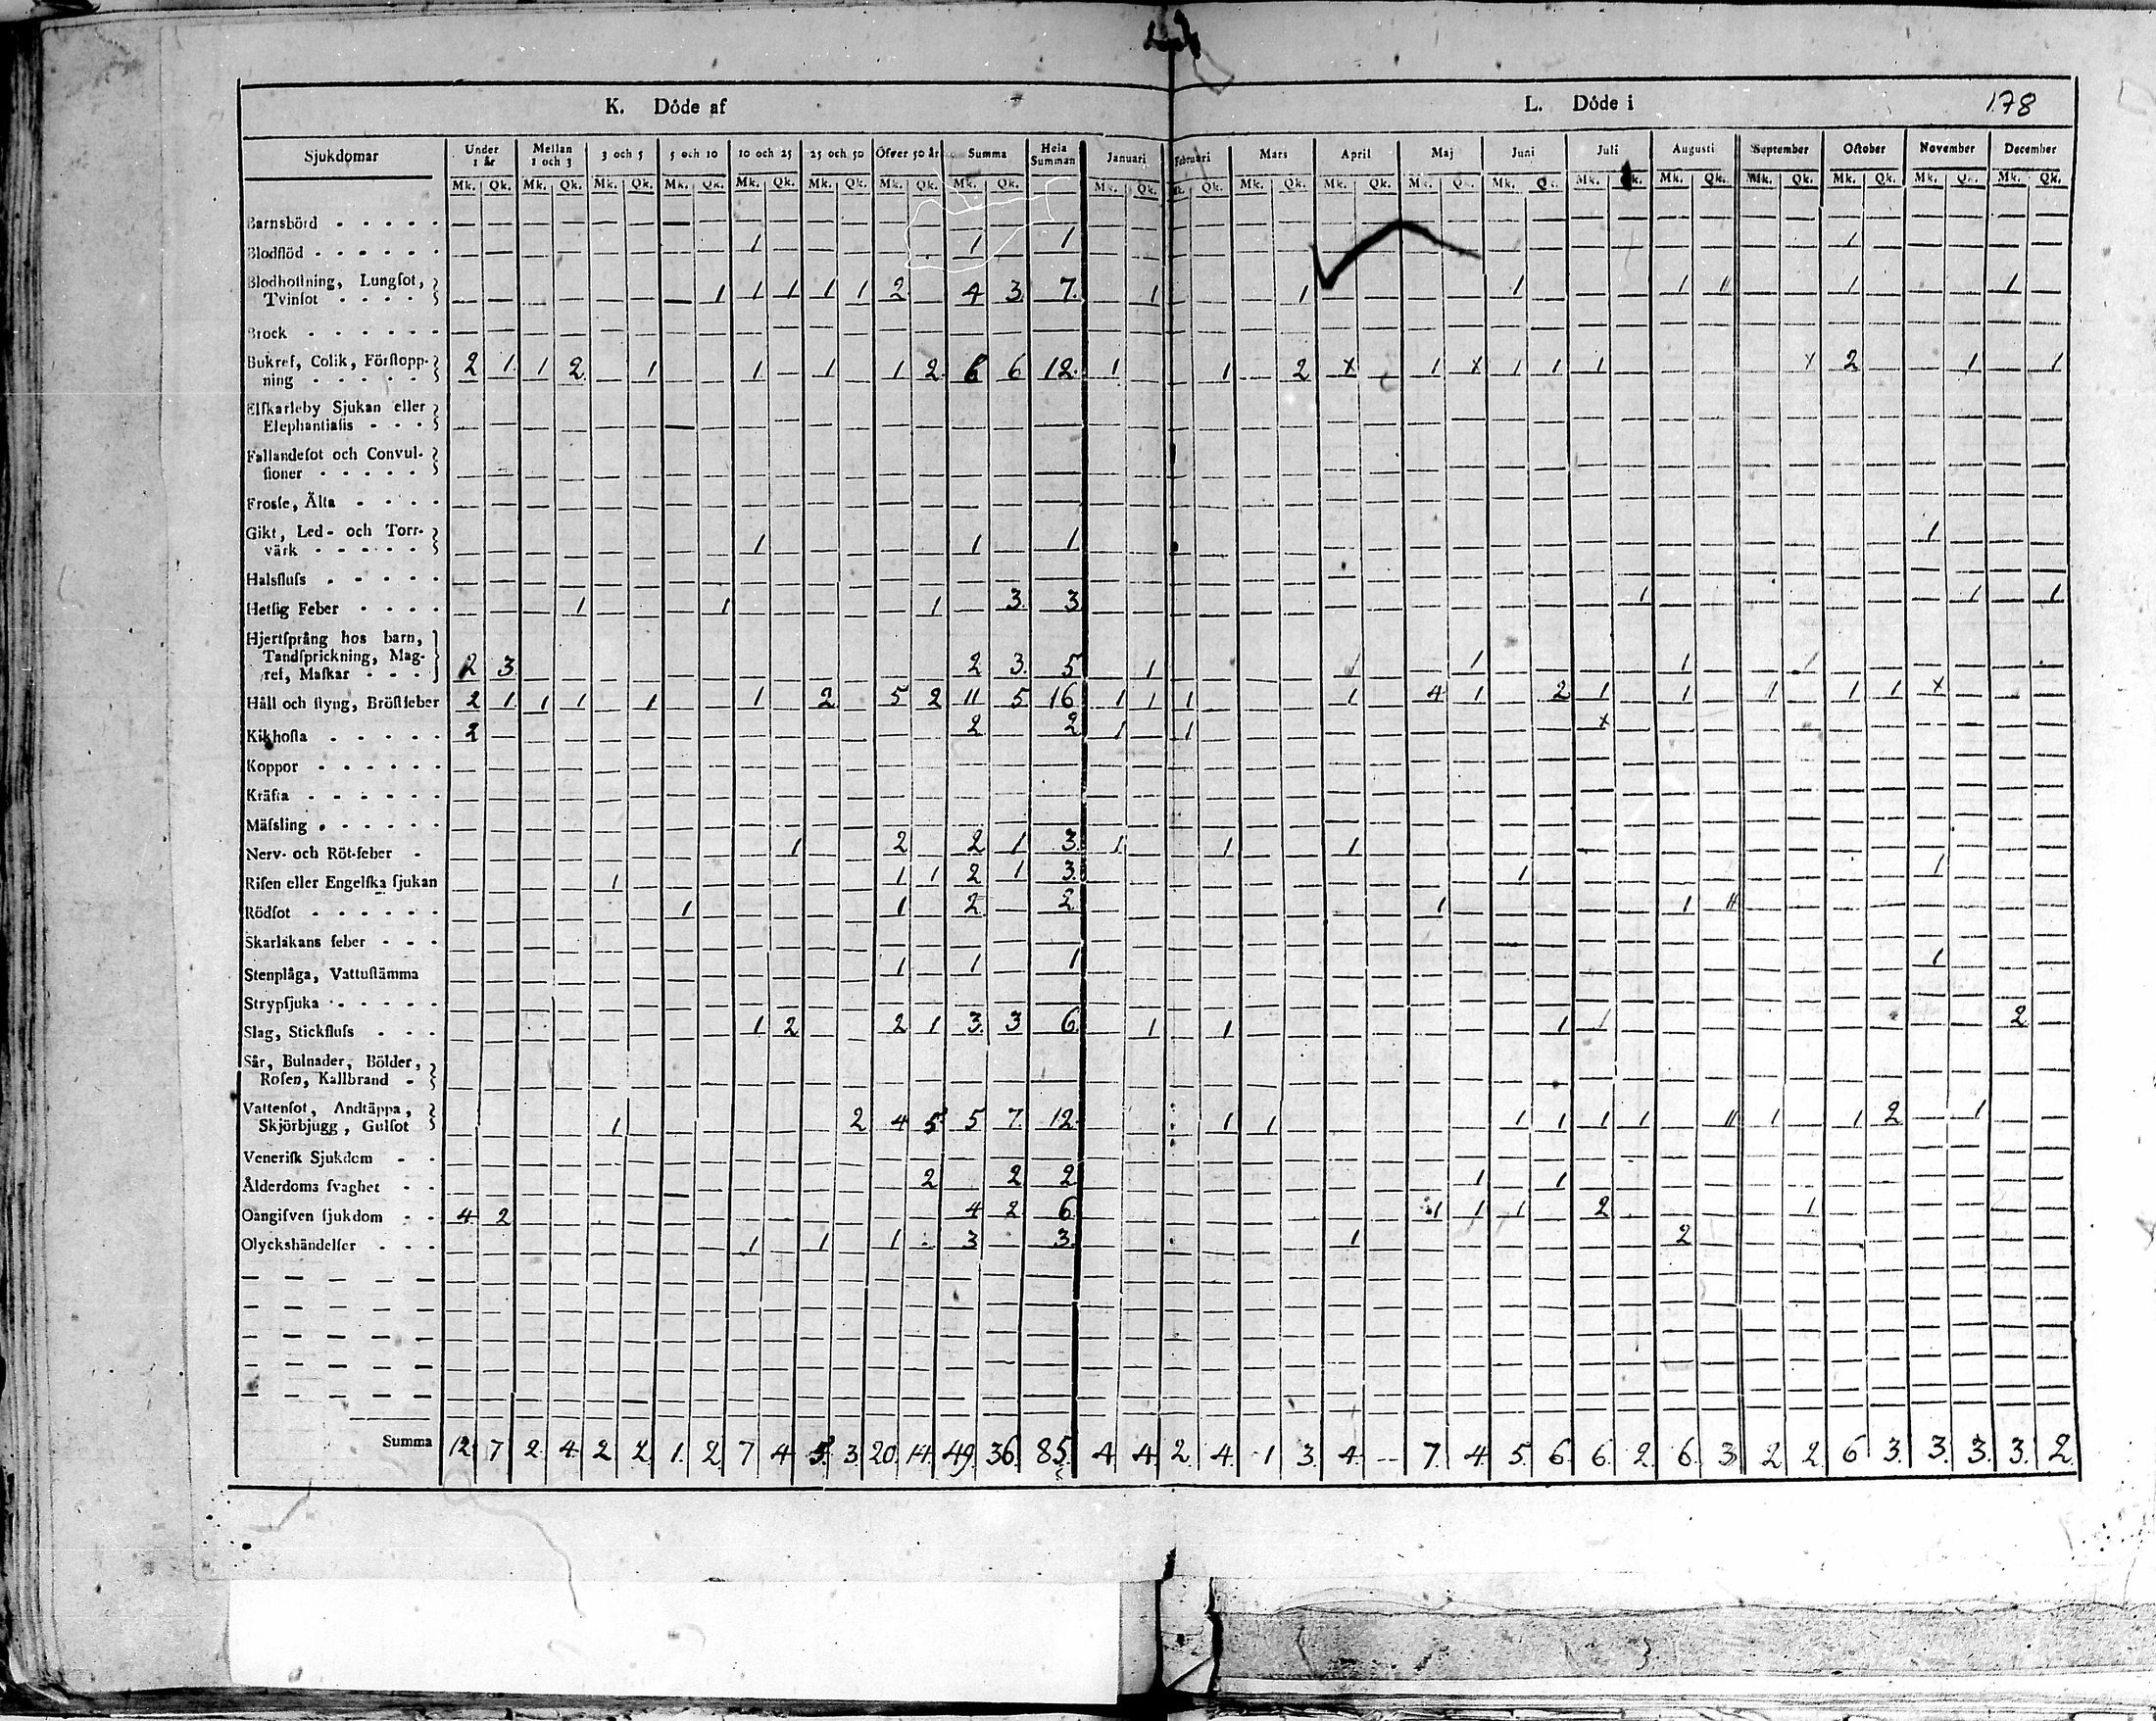 K. Döde af L. Döde i 178
Sjukdomar Under 1 år Mellan 1 och 3 3 och 5 5 och 10 10 och 25 25 och 50 Öfver 50 år Summa Hela Summan Januari Februari Mars April Maj Juni Juli Augusti September October November December
Mk. Qk. Mk. Qk. Mk. Qk. Mk. Qk. Mk. Qk. Mk. Qk. Mk. Qk. Mk. Qk. Mk. Qk. Mk. Qk. Mk. Qk. Mk. Qk. Mk. Qk. Mk. Qk. Mk. Qk. Mk. Qk. Mk. Qk. Mk. Qk. Mk. Qk. Mk. Qk.
Barnsbörd
Blodflöd 1 1 1 1
Blodhostning, Lungsot,
Tvinsot 1 1 1 1 1 2 4 3 7. 1 1 1 1 11 1 1
Brock
Bukref, Colik, Förstopp-
ning 2 1 1 2 1 1 1 1 2 6 6 12. 1 1 2 x 1 x 1 1 1 x 2 1 1
Elfkarleby Sjukan eller
Elephantiasis
Fallandesot och Convul-
sioner
Frossa, Älta
Gikt, Led- och Torr-
värk 1 1 1 1
Halsfluss
Hetsig Feber 1 1 1 3. 3 1 1 1
Hjertsprång hos barn,
Tandsprickning, Mag-
ref, Maskar 2 3 2 3. 5 1 1 1 1 1
Håll och styng, Bröstfeber 2 1 1 1 1 1 2 5 2 11 5 16 1 1 1 1 4 1 2 1 1 1 1 1 x
Kikhosta 2 2 2 1 1 x
Koppor
Kräfta
Mässling
Nerv- och Röt-feber 1 2 2 1 3. 1 1 1
Risen eller Engelska sjukan 1 1 1 2 1 3. 1 1
Rödsot 1 1 2 2 1 1 11
Skarlakans feber
Stenplåga, Vattustämma 1 1 1 1
Strypsjuka
Slag, Stickfluss 1 2 2 1 3. 3 6. 1 1 1 1 2
Sår, Bulnader, Bölder,
Rosen, Kallbrand
Vattensot, Andtäppa,
Skjörbjugg, Gulsot 1 2 4 5 5 7. 12. 1 1 1 1 1 1 11 1 1 2 1
Venerisk Sjukdom
Ålderdoms svaghet 2 2 2 1 1
Oangifven sjukdom 4 2 4 2 6 1 1 1 2 1
Olyckshändelser 1 1 1 3 3. 1 2
Summa 12 7 2 4 2 2 1. 2 7 4 5 3 20. 14. 49. 36. 85. 4 4. 2. 4. 1 3. 4. -- 7. 4 5. 6. 6. 2. 6. 3. 2 2. 6 3. 3. 3. 3. 2.